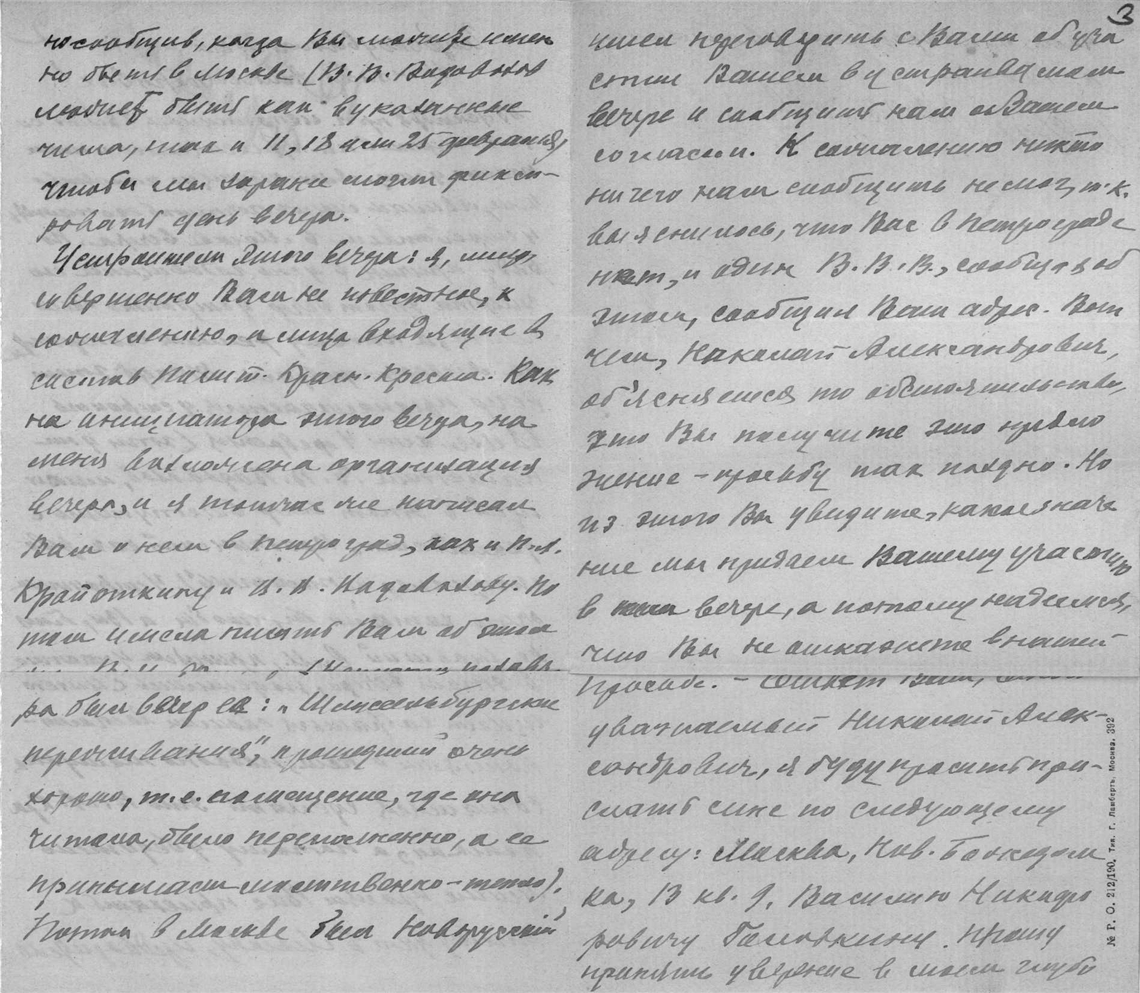 но сообщив, когда Вы можете имен
но быть в Москве (В. В. Водовозов
может быть как в указанные
числа, так и 11, 18 или 25 февраля),
чтобы мы заранее могли фикси-
ровать день вечера.
Устроители этого вечера: я, лицо,
совершенно Вам не известное, к
сожалению, и лица входящие в
состав Полит. Красн. Креста. Как
на инициатора этого вечера, на
меня возложена организация
вечера, и я тотчас же написал
Вам о нем в Петроград, как и П. А.
Кропоткину и И. И. По
том имела писать Вам об этом
ра был вечер ее: „Шлиссельбургские
переживания", прошедший очень
хорошо, т.е. помещение, где она
читала, было переполнено, а ее
принимали молитвенно-тепло).
Потом в Москве был Новорусский
3
имел переговорить с Вами об уча
стии Вашем в устраиваемом
вечере и сообщить нам о Вашем
согласии. К сожалению никто
ничего нам сообщить не мог, т.к.
выяснилось, что Вас в Петрограде
нет, и один В. В. В., сообщая об
этом, сообщил Ваш адрес. Вот
чем, Николай Александрович,
об'ясняется то обстоятельство,
что Вы получите это предло
жение – просьбу так поздно. Но
из этого Вы увидите, какое значе
ние мы придаем Вашему участию
в вечере, а потому надеемся,
что Вы не откажете в нашей
просьбе. – Ответ Ваш,
уважаемый Николай Алек-
сандрович, я буду просить при-
слать мне по следующему
адресу: Москва, Нов. Божедом
ка, 13 кв. 9, Василию Никифо
ровичу Головкину. Прошу
принять уверение в моем глубо
№ Г. О. 212/190, Тип. Г. Ламберть, Москва, 392